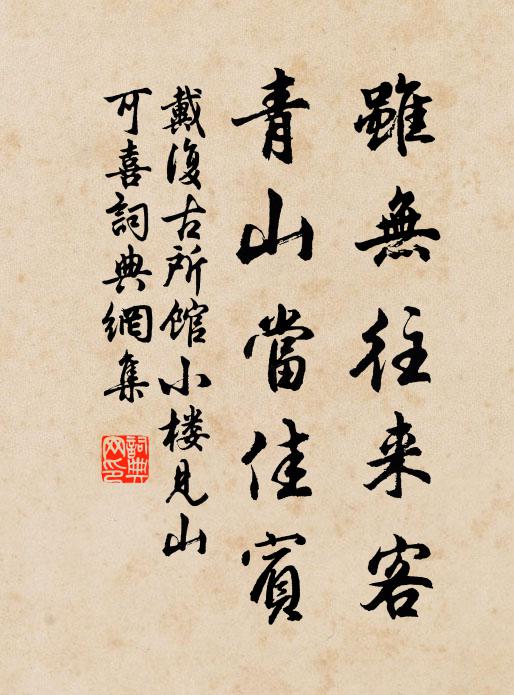 雖無往来客
青山當佳賓
戴復古所館小楼見山
可喜詞典網集
詞典网印